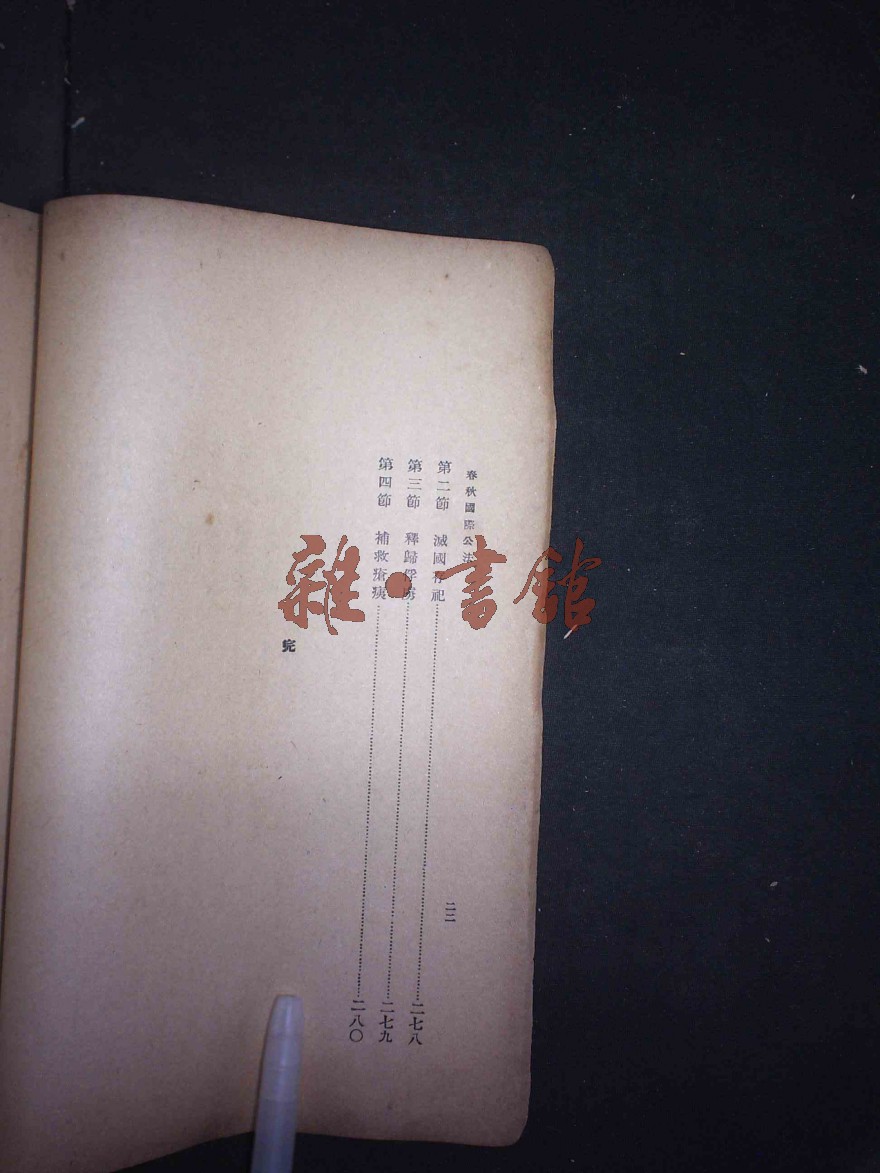 春秋國際公法
二二
第二節　滅國存祀……二七八
第三節　釋歸俘虜……二七九
第四節　補救瘡痍……二八〇
完
雜·書館